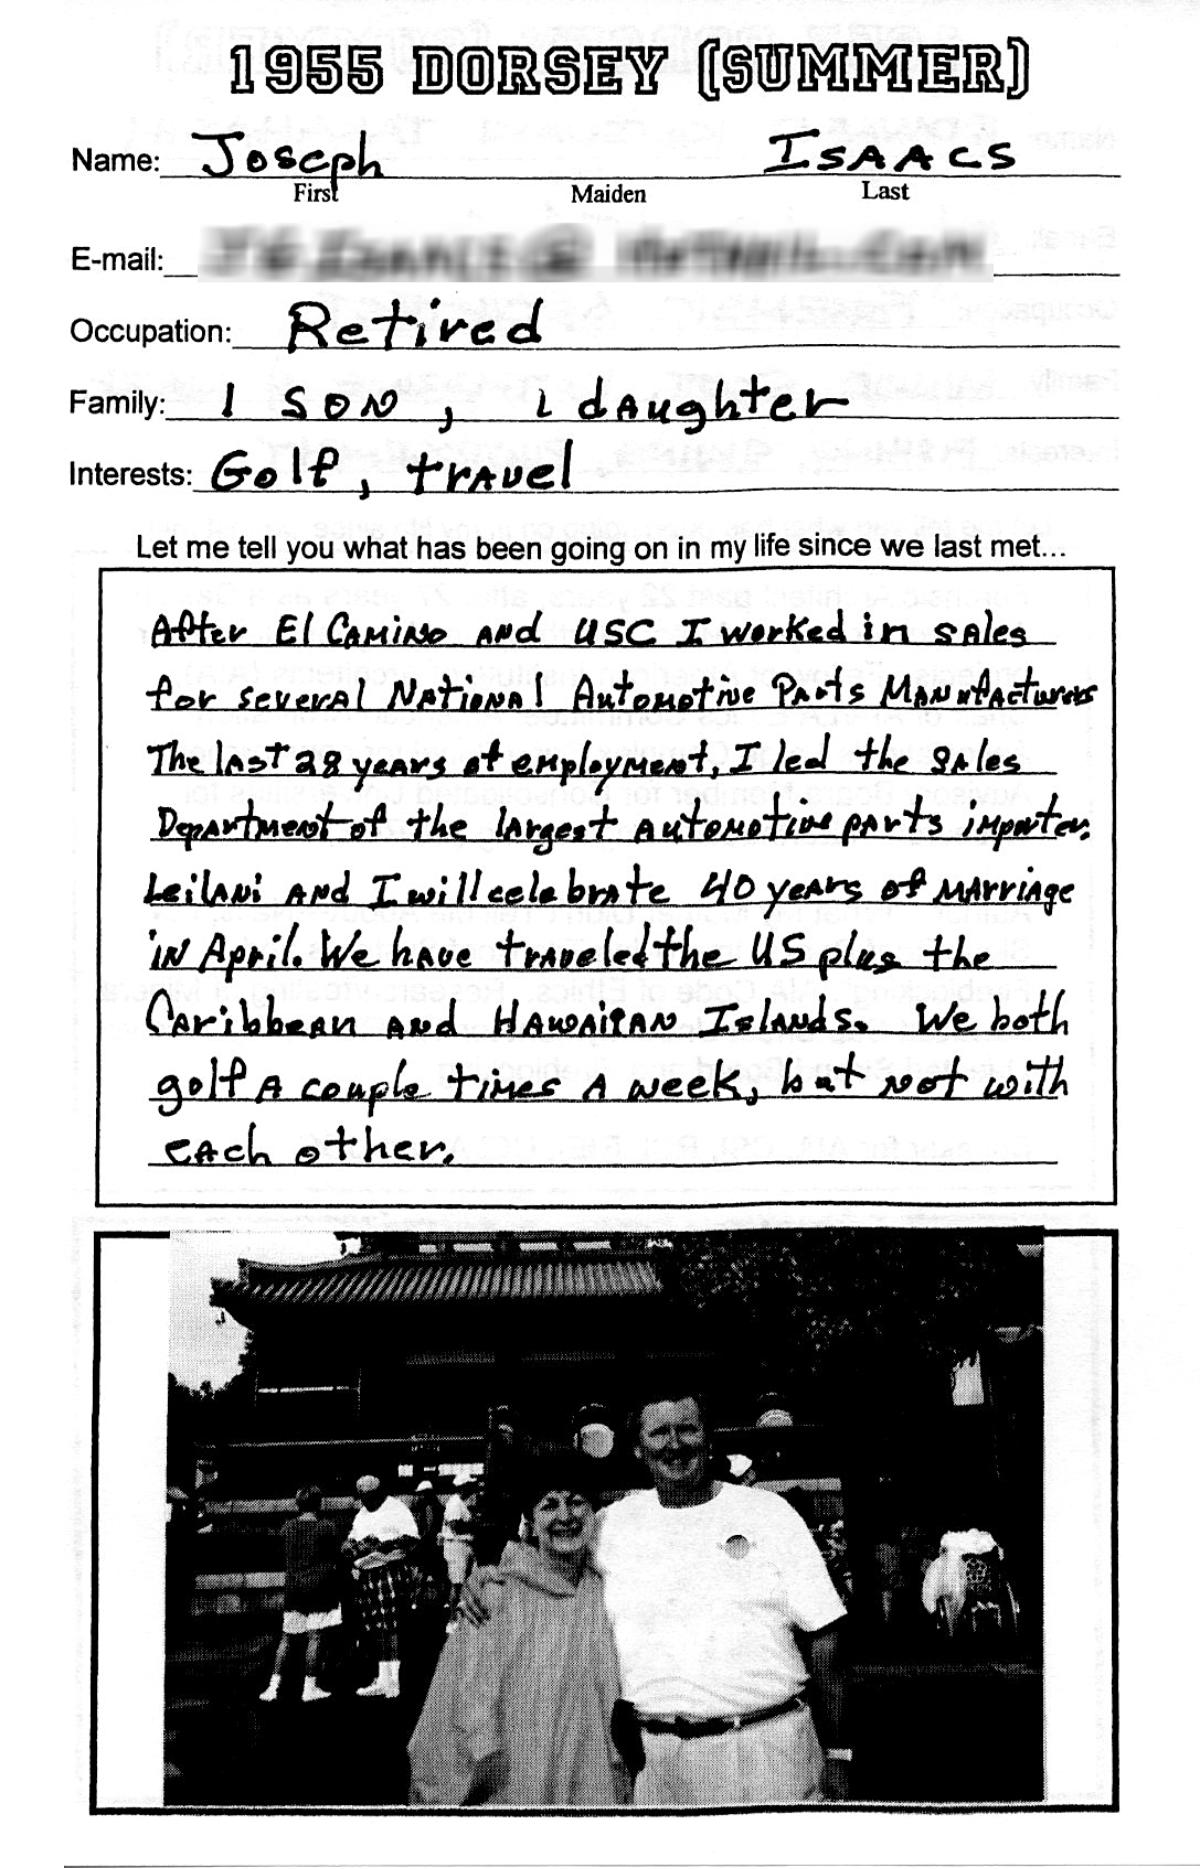 1955 DORSEY (SUMMER)
Name: Joseph Isaacs
First Maiden Last
E-mail:
Occupation: Retired
Family: 1 son, 1 daughter
Interests: Golf, travel
Let me tell you what has been going on in my life since we last met...
After El Camino and USC I worked in sales
for several National Automotive Parts Manufacturers
The last 28 years of employment, I led the sales
Department of the largest automotive parts importer.
Leilani and I will celebrate 40 years of marriage
in April. We have traveled the US plus the
Caribbean and Hawaiian Islands. We both
golf a couple times a week, but not with
each other.